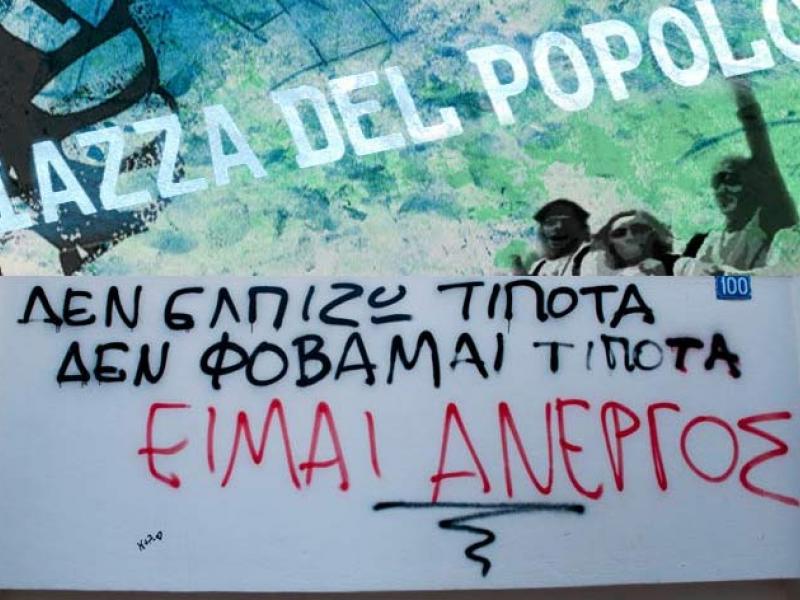 PIAZZA DEL POPOLO
100
ΔΕΝ ΕΛΠΙΖΩ ΤΙΠΟΤΑ
ΔΕΝ ΦΟΒΑΜΑΙ ΤΙΠΟΤΑ
ΕΙΜΑΙ ΑΝΕΡΓΟΣ